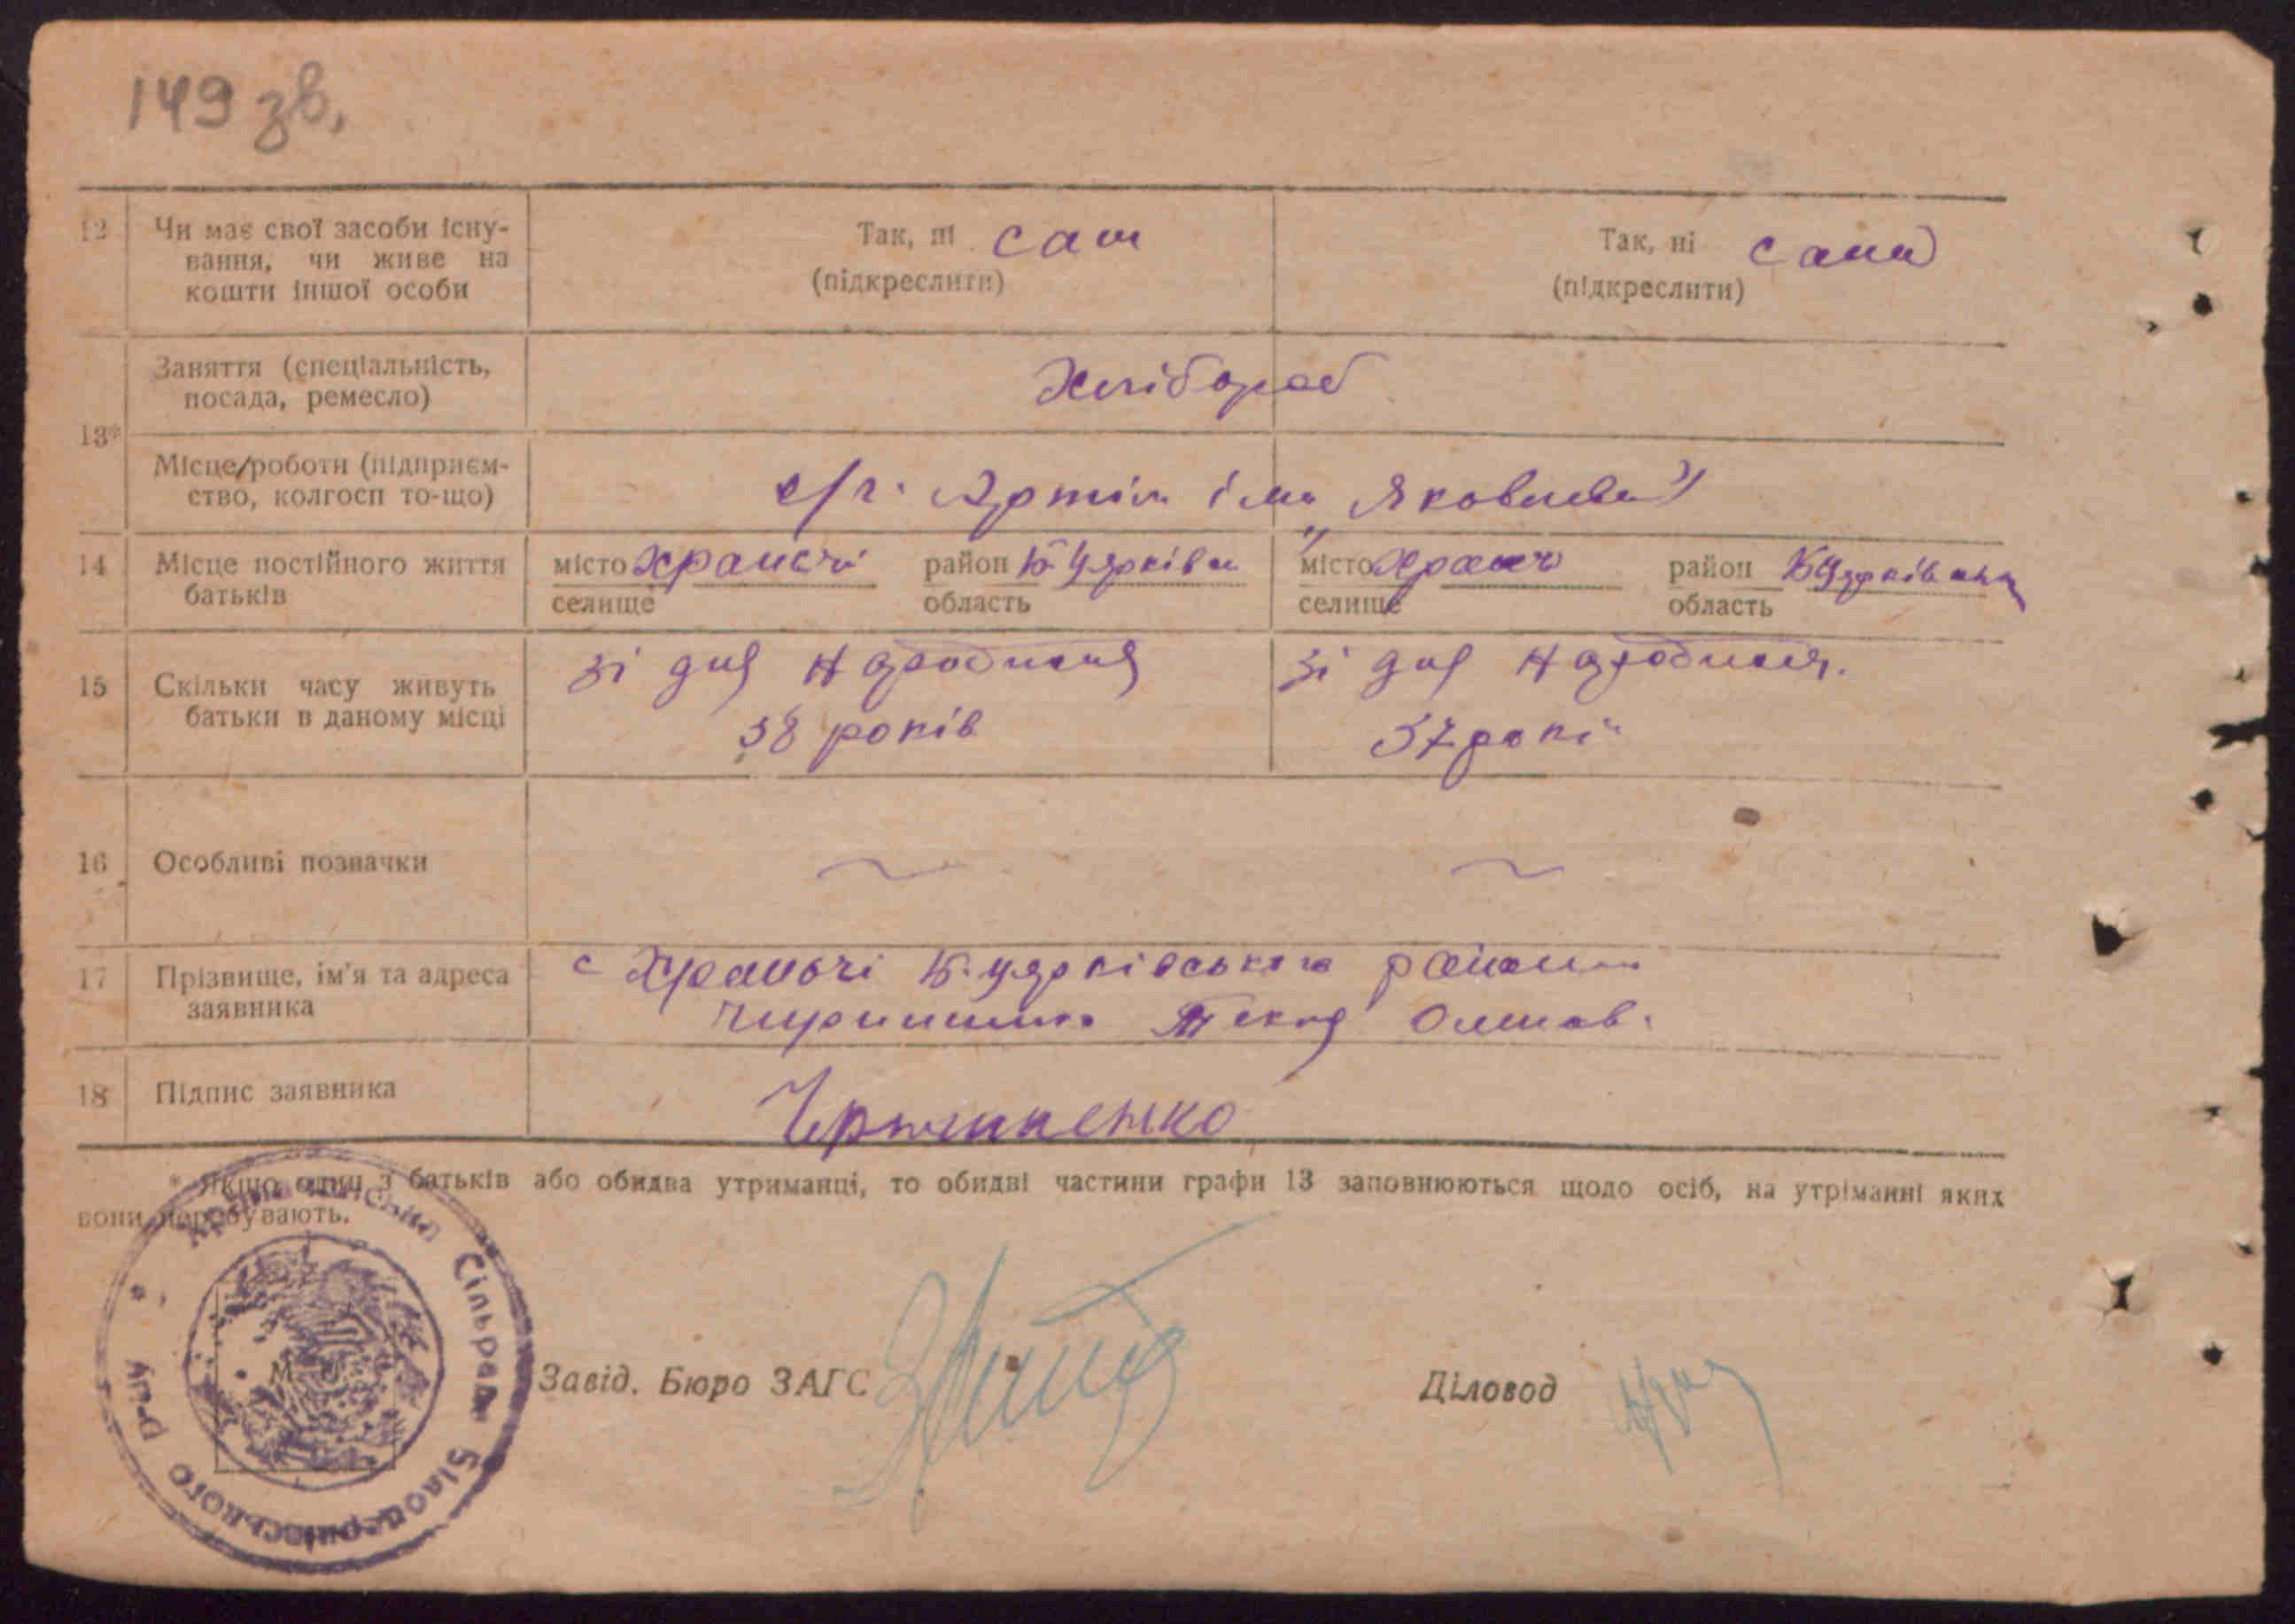 149 зв.
12 Чи має свої засоби існу-
вання, чи живе на
кошти іншої особи
Так, ні сам
(підкреслити)
Так, ні сама
(підкреслити)
13*
Заняття (спеціальність,
посада, ремесло)
Хлібороб
Місце роботи (підприєм-
ство, колгосп то-що)
с/г. Артіль ім. Яковлева
14 Місце постійного життя
батьків
місто Храпачі район Б Церківсь
селище область
місто Храпач район БЦерківськ
селище область
15 Скільки часу живуть
батьки в даному місці
зі дня Народження
38 років
зі дня Народження.
37 років
16 Особливі позначки
17 Прізвище, ім'я та адреса
заявника
с Храпачі Б.Церківського району
Текля
18 Підпис заявника
* Якщо один з батьків або обидва утриманці, то обидві частини графи 13 заповнюються щодо осіб, на утріманні яких
вони перебувають.
Сільрада Білоцерківського р-ну
М
Завід. Бюро ЗАГС
Діловод